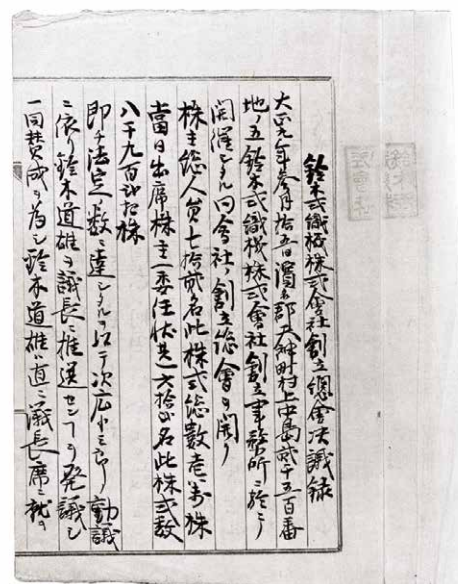 鈴木式織機株式會社創立總會決議録
大正九年參月拾五日濱名郡天神町村上中島貳千五百番
地ノ五鈴木式織機株式會社創立事務所ニ於テ
開催シタル同會社ノ創立總會ヲ開ク
株主總人員七拾貳名此株式總數壱万株
當日出席株主(委任状共)六拾名此株式數
八千九百株
即チ法定ノ數ニ達シタルヲ以テ次広ノ動議
ニ依リ鈴木道雄ヲ議長ニ推選センコトヲ発議シ
一同賛成ヲ為シ鈴木道雄ハ直ニ議長席ニ就キ